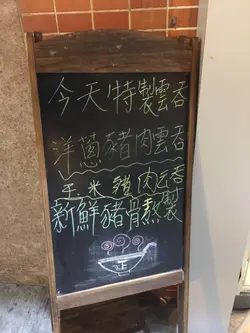 今天特製雲吞
洋蔥豬肉雲吞
玉米雞肉云吞
新鮮豬骨熬製
正